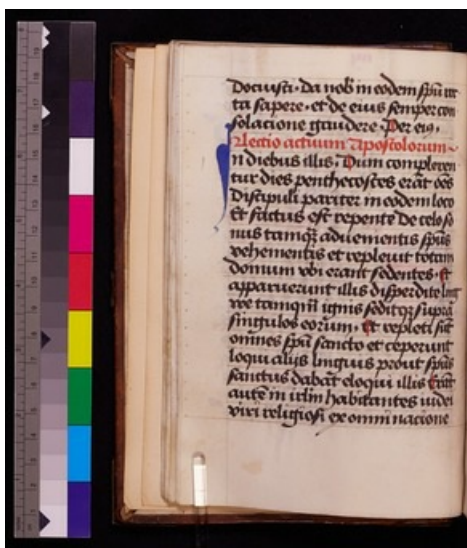 Docuisti. da nob in eodem spũ rec
ta sapere. et de eius semper con
solacione gaudere. Per eũ.
Lectio actuum Apostolorum.
In diebus illis. Dum compleren
tur dies penthecostes erãt oẽs
Discipuli pariter in eodem loco
Et factus est repente de celo so
nus tamqʒ aduenientis spũs
vehementis et repleuit totam
domum vbi erant sedentes. Et
apparuerunt illis disperdite ling
we tamqm̃ ignis sedit qʒ supra
singulos eorum. Et repleti sũt
omnes spũ sancto et ceperunt
loqui alijs linguis prout spũs
sanctus dabãt eloqui illis Erãt
autẽ in irlm habitantes iudei
viri religiosi ex omni nacione